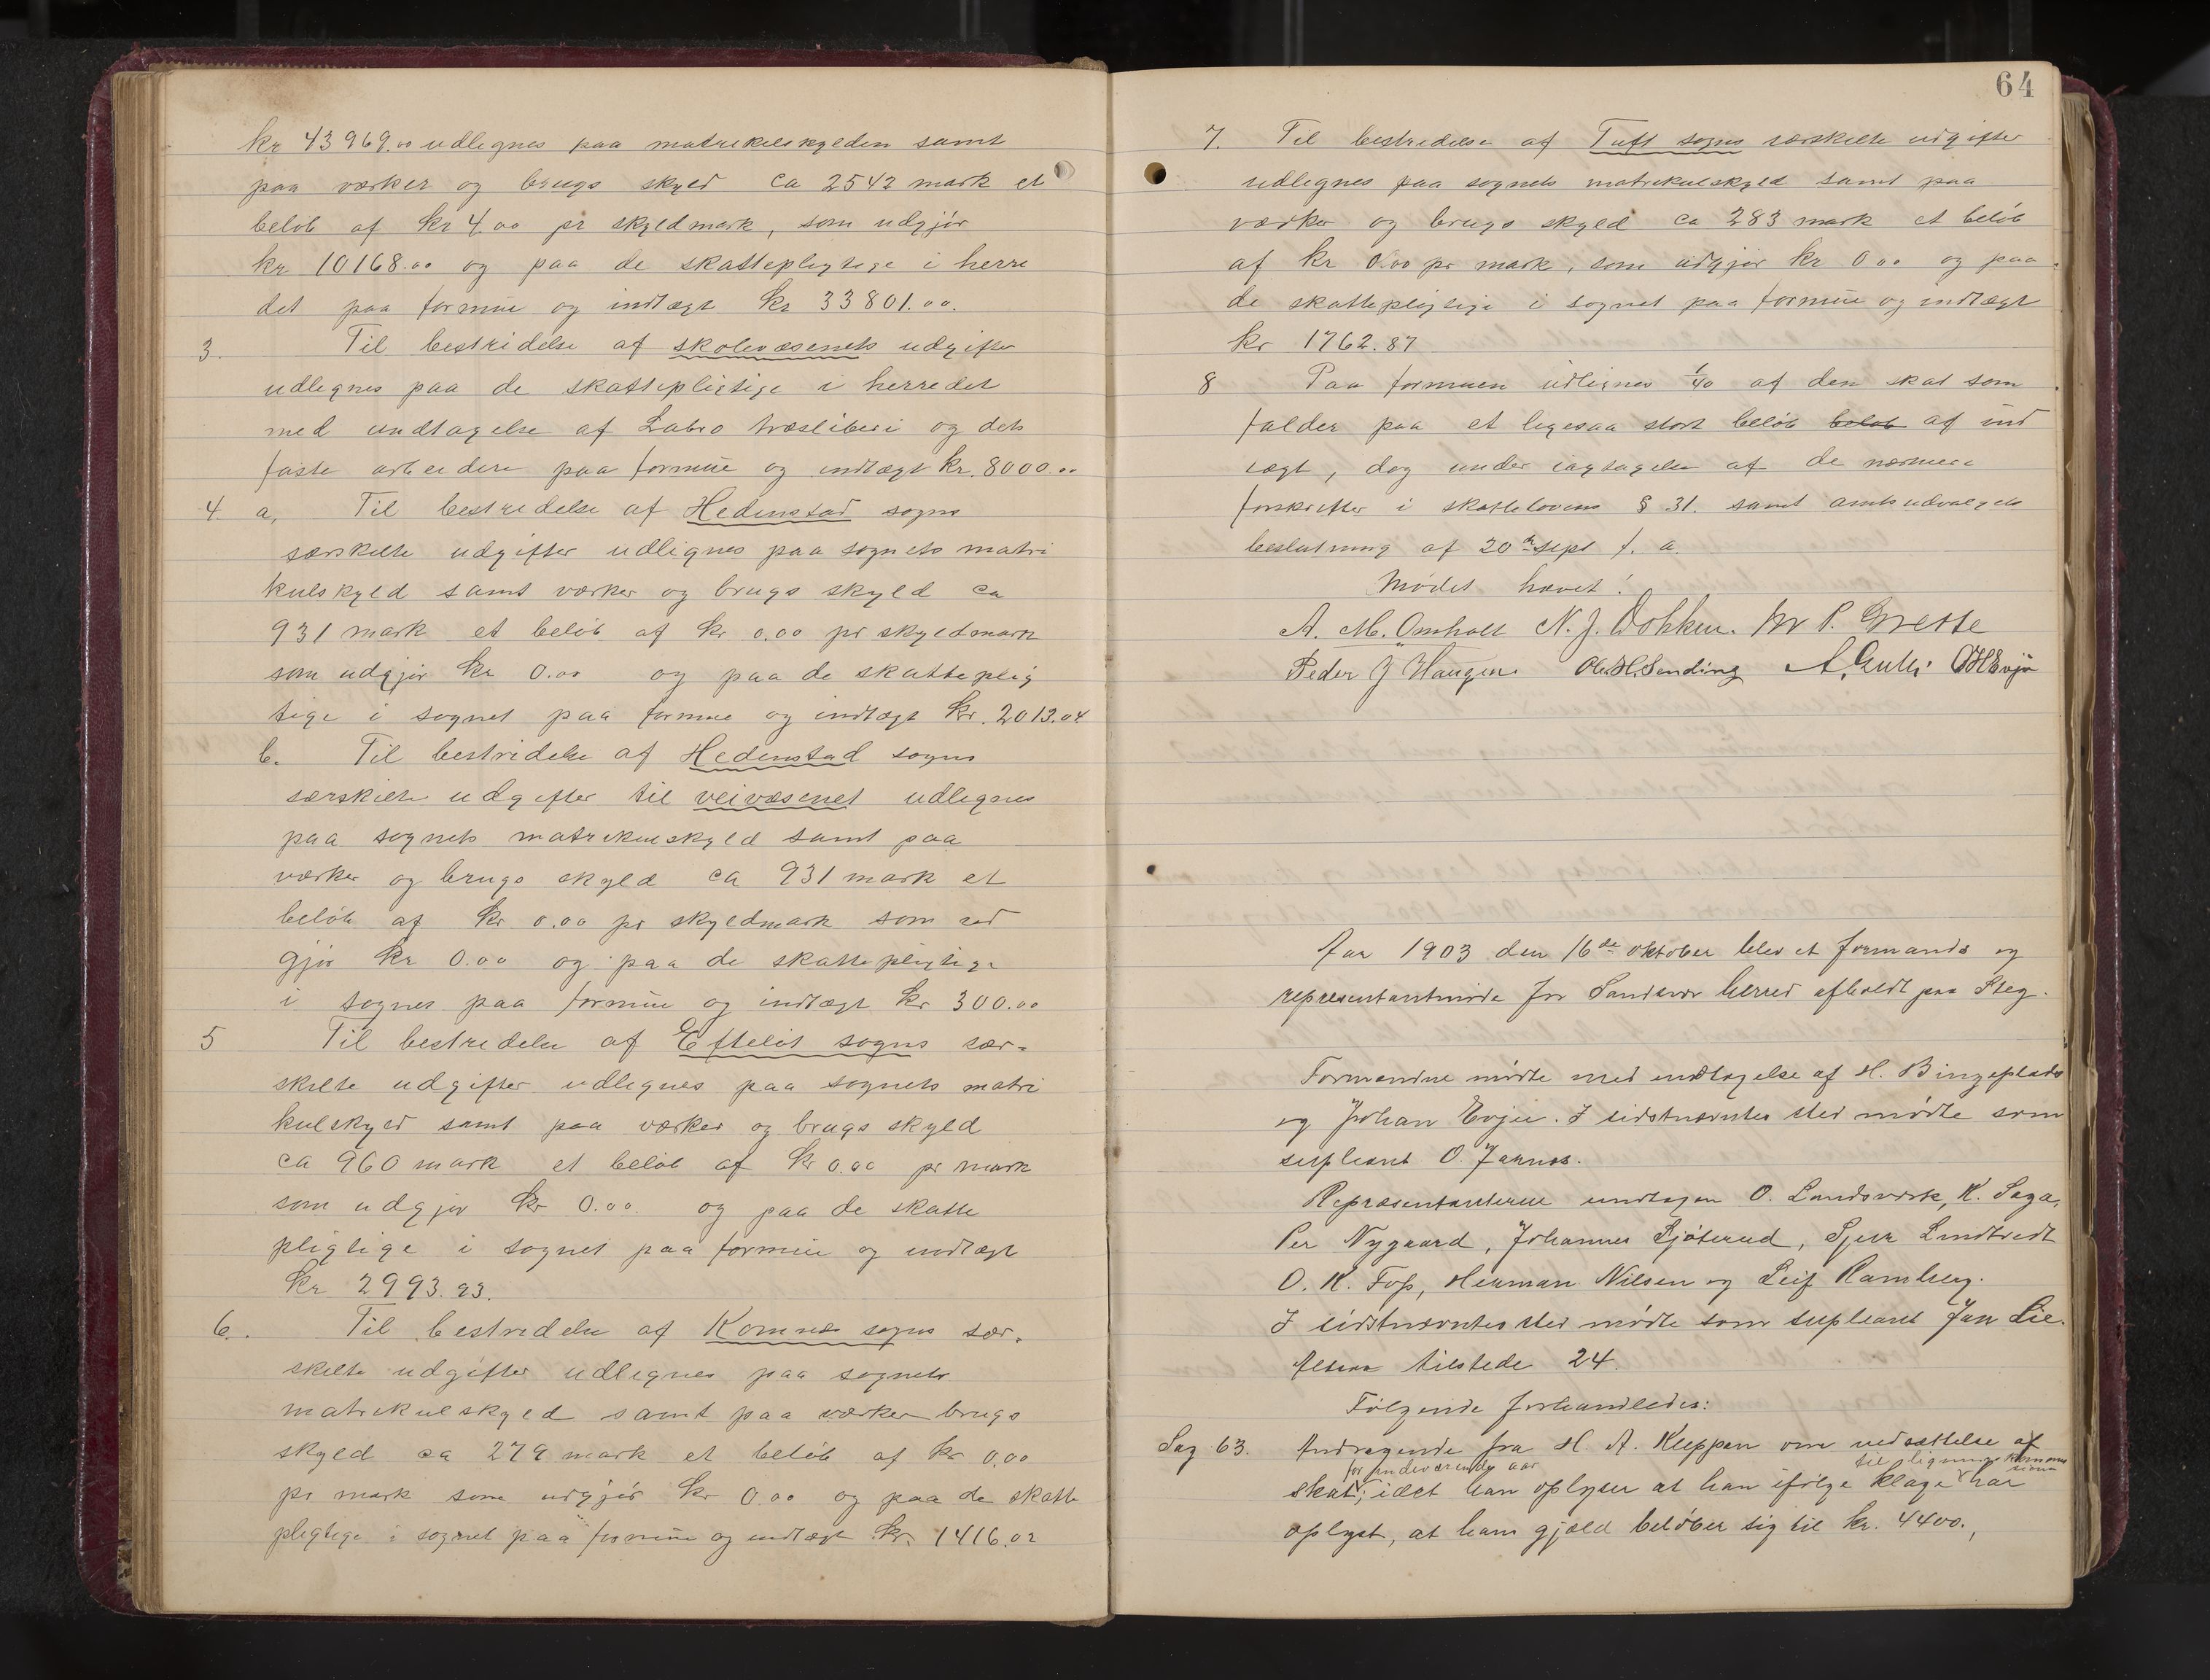 kr 43969.00 udlegnes paa matrikelskylden samt
paa værker og brugs skyld ca 2542 mark et
beløb af kr 4.00 pr skyldmark, som udgjør
kr 10168.00 og paa de skattepligtige i herre
det paa formue og indtægt kr 33801.00.
3. Til bestridelse af skolevæsenets udgifter
udlegnes paa de skattepligtige i herredet
med undtagelse af Labro træsliberi og dets
faste arbeidere paa formue og indtægt kr. 8000.00
4. a, Til bestridelse af Hedenstad sogns
særskilte udgifter udlignes paa sognets matri
kulskyld samt værker og brugs skyld ca
931 mark et beløb af kr 0.00 pr skyldmark
som udgjør kr 0.00 og paa de skatteplig
tige i sognet paa formue og indtægt kr. 2013.04
b. Til bestridelse af Hedenstad sogns
særskilte udgifter til veivæsenet udlegnes
paa sognets matrikulskyld samt paa
værker og brugs skyld ca 931 mark et
beløb af kr 0.00 pr skyldmark som ud
gjør kr 0.00 og paa de skattepligtige
i sognet paa formue og indtægt kr 300.00
5 Til bestridelse af Efteløt sogns sær-
skilte udgifter udlegnes paa sognets matri
kulskyld samt paa værker og brugs skyld
ca 960 mark et beløb af kr 0.00 pr mark
som udgjør kr 0.00. og paa de skatte
pligtige i sognet paa formue og indtægt
kr 2993.93.
6. Til bestridelse af Komnæs sogns sær-
skilte udgifter udlegnes paa sognets
matrikulskyld samt paa værker brugs
skyld ca 279 mark et beløb af kr 0.00
pr mark som udgjør kr 0.00 og paa de skatte
pligtige i sognet paa formue og indtægt kr. 1416.02
64
7. Til bestridelse af Tuft sogns særskilte udgifter
udlegnes paa sognets matrikulskyld samt paa
værker og brugs skyld ca 283 mark et beløb
af kr 0.00 pr mark, som udgjør kr 0.00 og paa
de skattepligtige i sognet paa formue og indtægt
kr 1762.87
8 Paa formuen udlignes 1/40 af den skat som
falder paa et ligesaa stort beløb beløb af ind
tægt, dog under iagtagelse af de nærmere
forskrifter i skattelovens § 31. samt amtsudvalgets
beslutning af 20de Sept f. a.
Mødet hævet!
A. M. Omholt N. J. Dokken. P. Grette
Peder J Haugen. Ole H. Sending
Aar 1903 den 16de oktober blev et formands og
representantmøde for Sandsvær herred afholdt paa Steg.
Formændne mødte med undtagelse af H. Bingeplads
og Johan Evju. I sidstnævntes sted mødte som
supleant O. Jarnæs.
Repræsentanterne undtagen O. Landsværk, K. Saga,
Per Nygaard, Johannes Sjøterud, Sjur Lindtvedt
O. K. Foss, Herman Nilsen og Leif Ramberg.
I sidstnævntes sted mødte som supleant Jan Lie.
Altsaa tilstede 24.
Følgende forhandledes:
Sag 63. Andragende fra H. A. Kleppan om nedsættelse af
for indeværende aar til lignings kommis
sion
skat, idet han oplyser at han ifølge klage har
oplyst, at hans gjæld beløber sig til kr. 4400.,